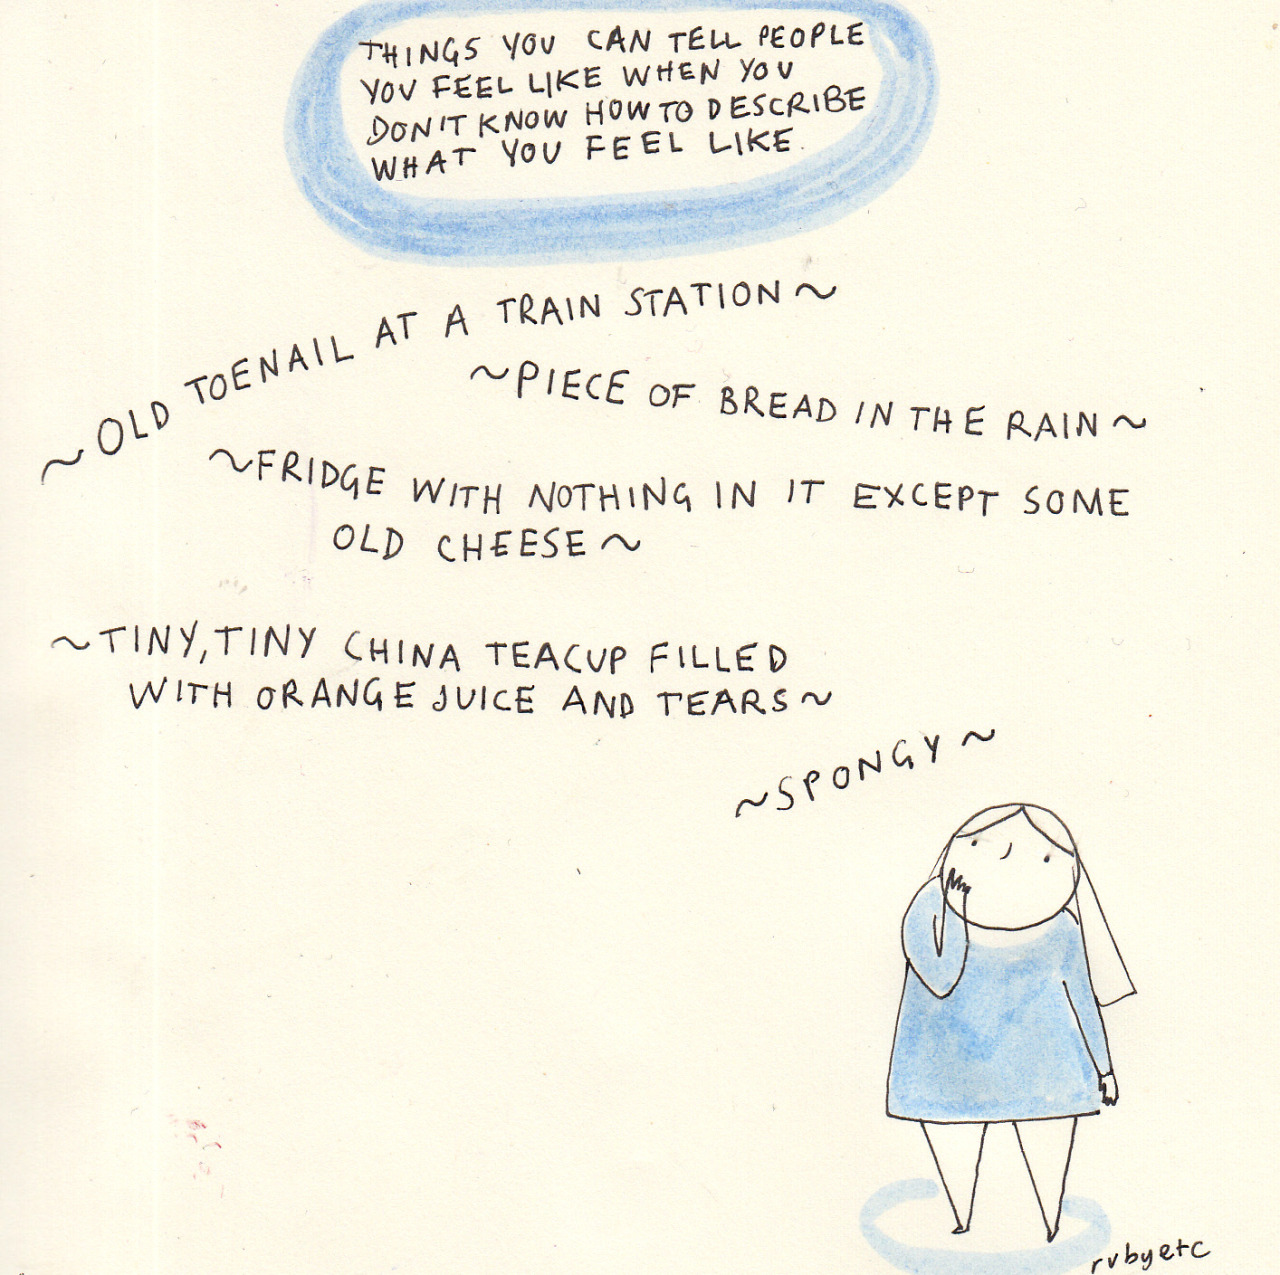 THINGS YOU CAN TELL PEOPLE
YOU FEEL LIKE WHEN YOU
DON'T KNOW HOW TO DESCRIBE
WHAT YOU FEEL LIKE.
~OLD TOENAIL AT A TRAIN STATION~
~PIECE OF BREAD IN THE RAIN~
~FRIDGE WITH NOTHING IN IT EXCEPT SOME
OLD CHEESE~
~TINY, TINY CHINA TEACUP FILLED
WITH ORANGE JUICE AND TEARS~
~SPONGY~
rubyetc